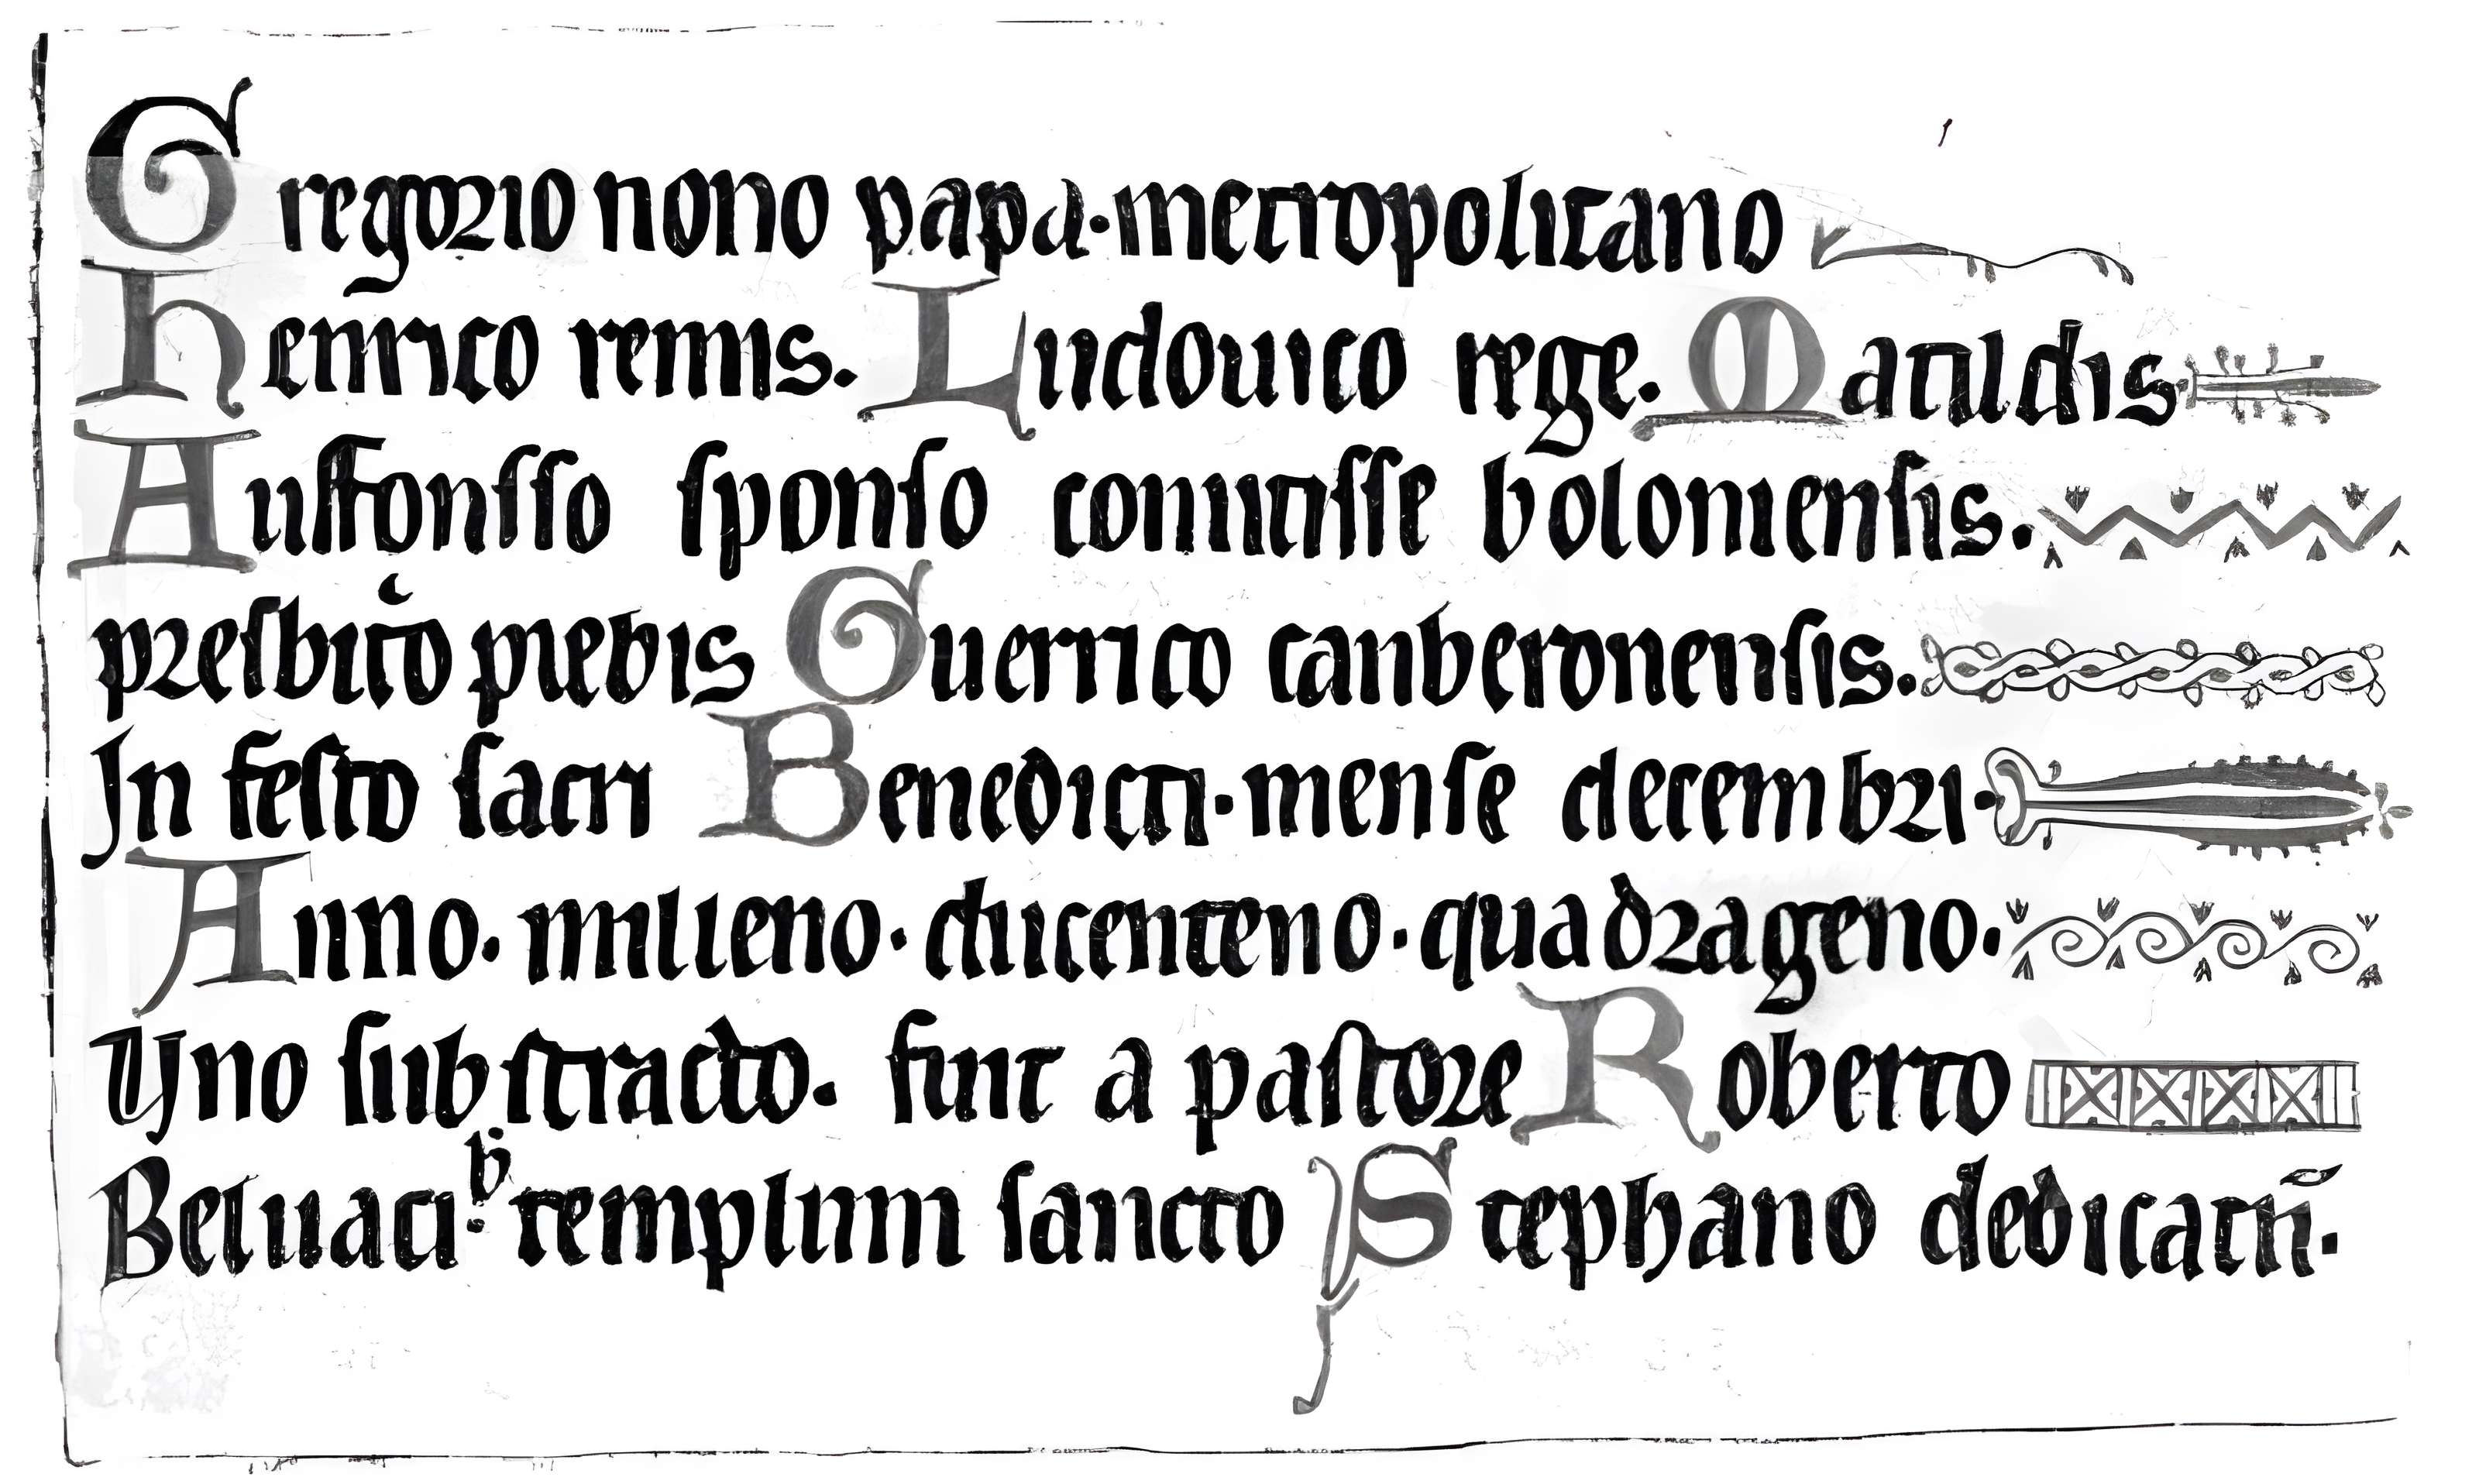 Gregorio nono papa·metropolitano
Henrico remis. Ludouico rege. Matildis
Aulffonsso sponso comitisse boloniensis.
presbit̉o plebis Guerrico canberonensis.
In festo sacri Benedicti·mense decembri·
Anno·milleno·ducenteno·quadrageno·
Uno substracto. fuit a pastore Roberto
Beluaciᵇ· templum sancto Stephano dedicatū.